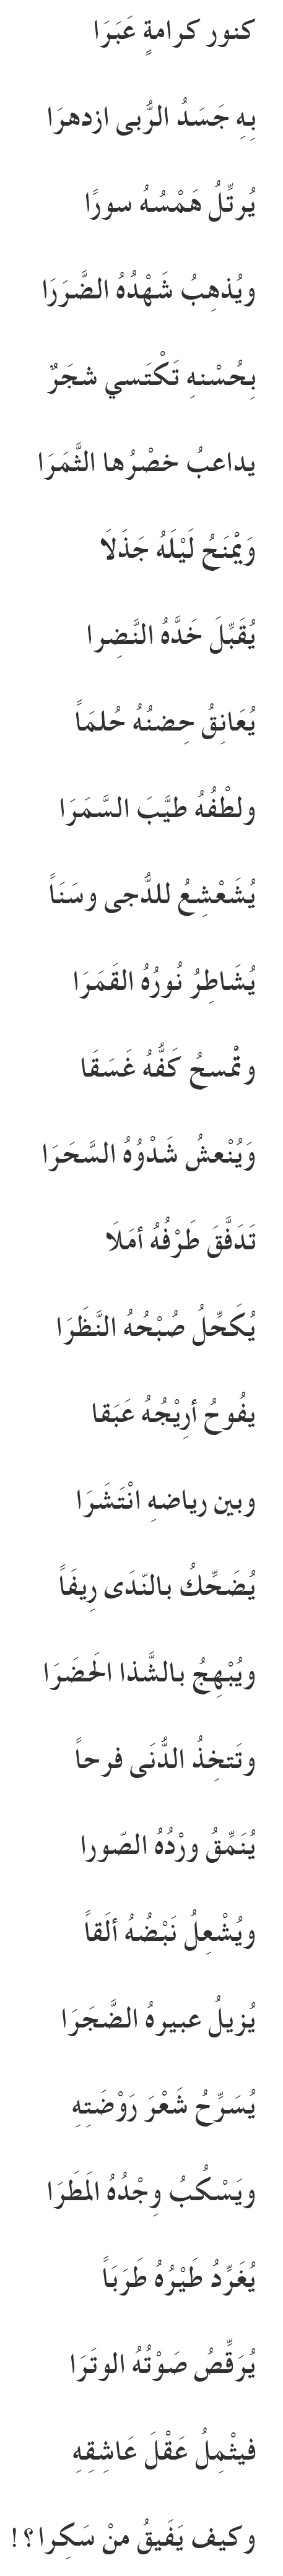 كنور كرامةٍ عَبَرَا
بِهِ جَسَدُ الرُّبى ازدهرَا
يُرتِّلُ هَمْسُهُ سورًا
ويُذهِبُ شَهْدُهُ الضَّرَرَا
بِحُسْنهِ تَكْتَسي شجَرٌ
يداعبُ خصْرُها الثَّمَرَا
وَيمْنَحُ لَيْلَهُ جَذَلَا
يُقَبِّلَ خَدَّهُ النَّضِرا
يُعَانِقُ حِضنُهُ حُلمَاً
ولطْفُهُ طيَّبَ السَّمَرَا
يُشَعْشِعُ للدُّجى وسَنَاً
يُشَاطِرُ نُورُهُ القَمَرَا
وتمْسحُ كَفُّهُ غَسَقَا
وَيُنْعشُ شَدْوُهُ السَّحَرَا
تَدَفَّقَ طَرْفُهُ أمَلَا
يُكَحِّلُ صُبْحُهُ النَّظَرَا
يفُوحُ أرِيْجُهُ عَبَقا
وبين رياضهِ انْتَشَرَا
يُضَحِّكُ بالنّدَى رِيفَاً
ويُبْهِجُ بالشَّذا الَحضَرَا
وتَتخِذُ الدُّنَى فرحاً
يُنَمِّقُ ورْدُهُ الصّورا
ويُشْعِلُ نَبْضُهُ ألَقاً
يُزيلُ عبيرهُ الضَّجَرَا
يُسَرِّحُ شَعْرَ رَوْضَتِهِ
ويَسْكُبُ وِجْدُهُ المَطَرَا
يُغَرِّدُ طَيْرُهُ طَرَبَاً
يُرَقِّصُ صَوْتُهُ الوتَرَا
فيثْمِلُ عَقْلَ عَاشِقِهِ
وكيف يَفَيقُ منْ سَكِرا؟!